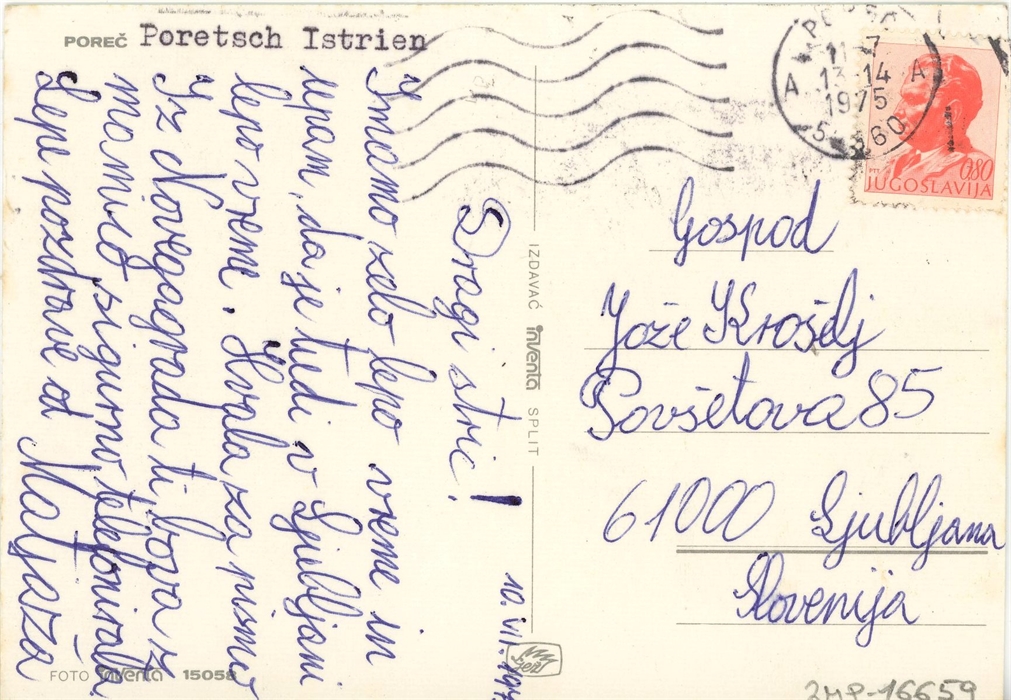 POREČ Poretsch Istrien
10. VII. 197
Dragi stric!
Imamo zelo lepo vreme in
upam, da je tudi v Ljubljani
lepo vreme. Hvala za pismo
Iz Novegagrada ti bova z
mamico sigurno telefonirala
Lepe pozdrave od Matjaža
FOTO inventa 15058
IZDAVAČ inventa SPLIT
POREČ
11-7
A 13-14 A
1975
PTT
0,80
JUGOSLAVIJA
Gospod
Jože Krošelj
Povšetova 85
61000 Ljubljana
Slovenija
ZMP-16659